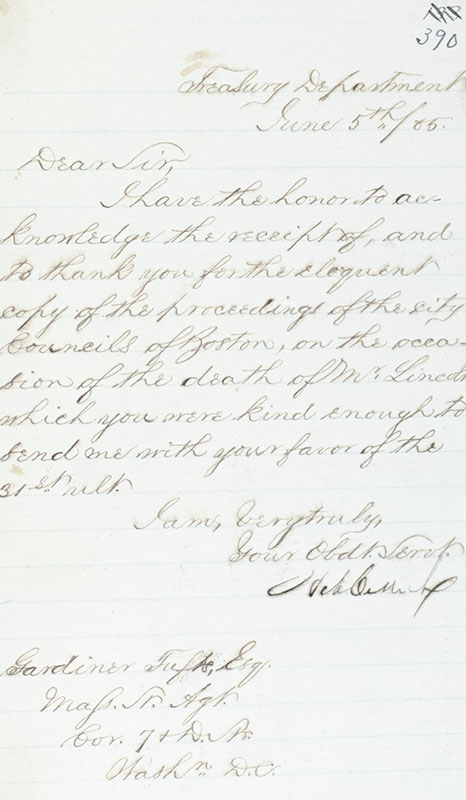 390
Treasury Department
June 5th/65.
Dear Sir,
I have the honor to ac-
knowledge the receipt of, and
to thank you for the eloquent
copy of the proceedings of the city
Councils of Boston, on the occa-
sion of the death of Mr Lincoln
which you were kind enough to
send me with your favor of the
31st ult.
I am, Very truly,
Your Obdt. Servt.
Gardiner Tufts, Esq.
Mass. St. Agt.
Cor. 7 & D. Sts.
Washn. D.C.